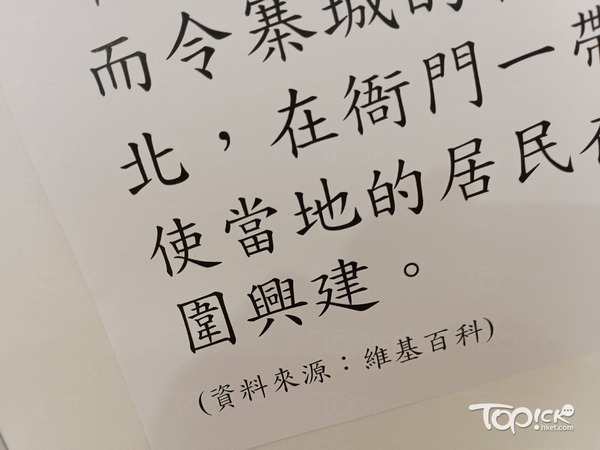 而令寨城的
北，在衙門一帶
使當地的居民
圍興建。
(資料來源：維基百科)
TOPICK
hket.com